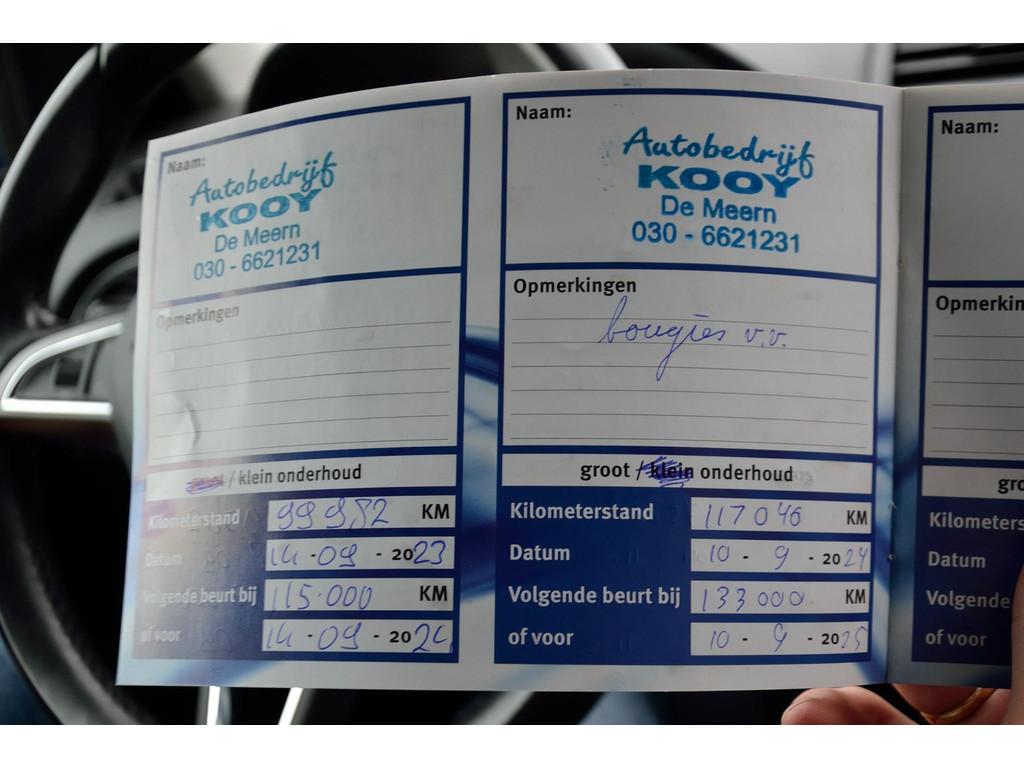 Naam:
Autobedrijf
KOOY
De Meern
030 - 6621231
Opmerkingen
/ klein onderhoud
Kilometerstand 99952 KM
Datum 14 - 09 - 2023
Volgende beurt bij 115.000 KM
of voor 14 - 09 - 2024
Naam:
Autobedrijf
KOOY
De Meern
030 - 6621231
Opmerkingen
bougies v.v.
groot / klein onderhoud
Kilometerstand 117046 KM
Datum 10 - 9 - 2024
Volgende beurt bij 133000 KM
of voor 10 - 9 - 2025
Naam:
Opmerkin
gro
Kilometers
Datum
Volgende
of voor